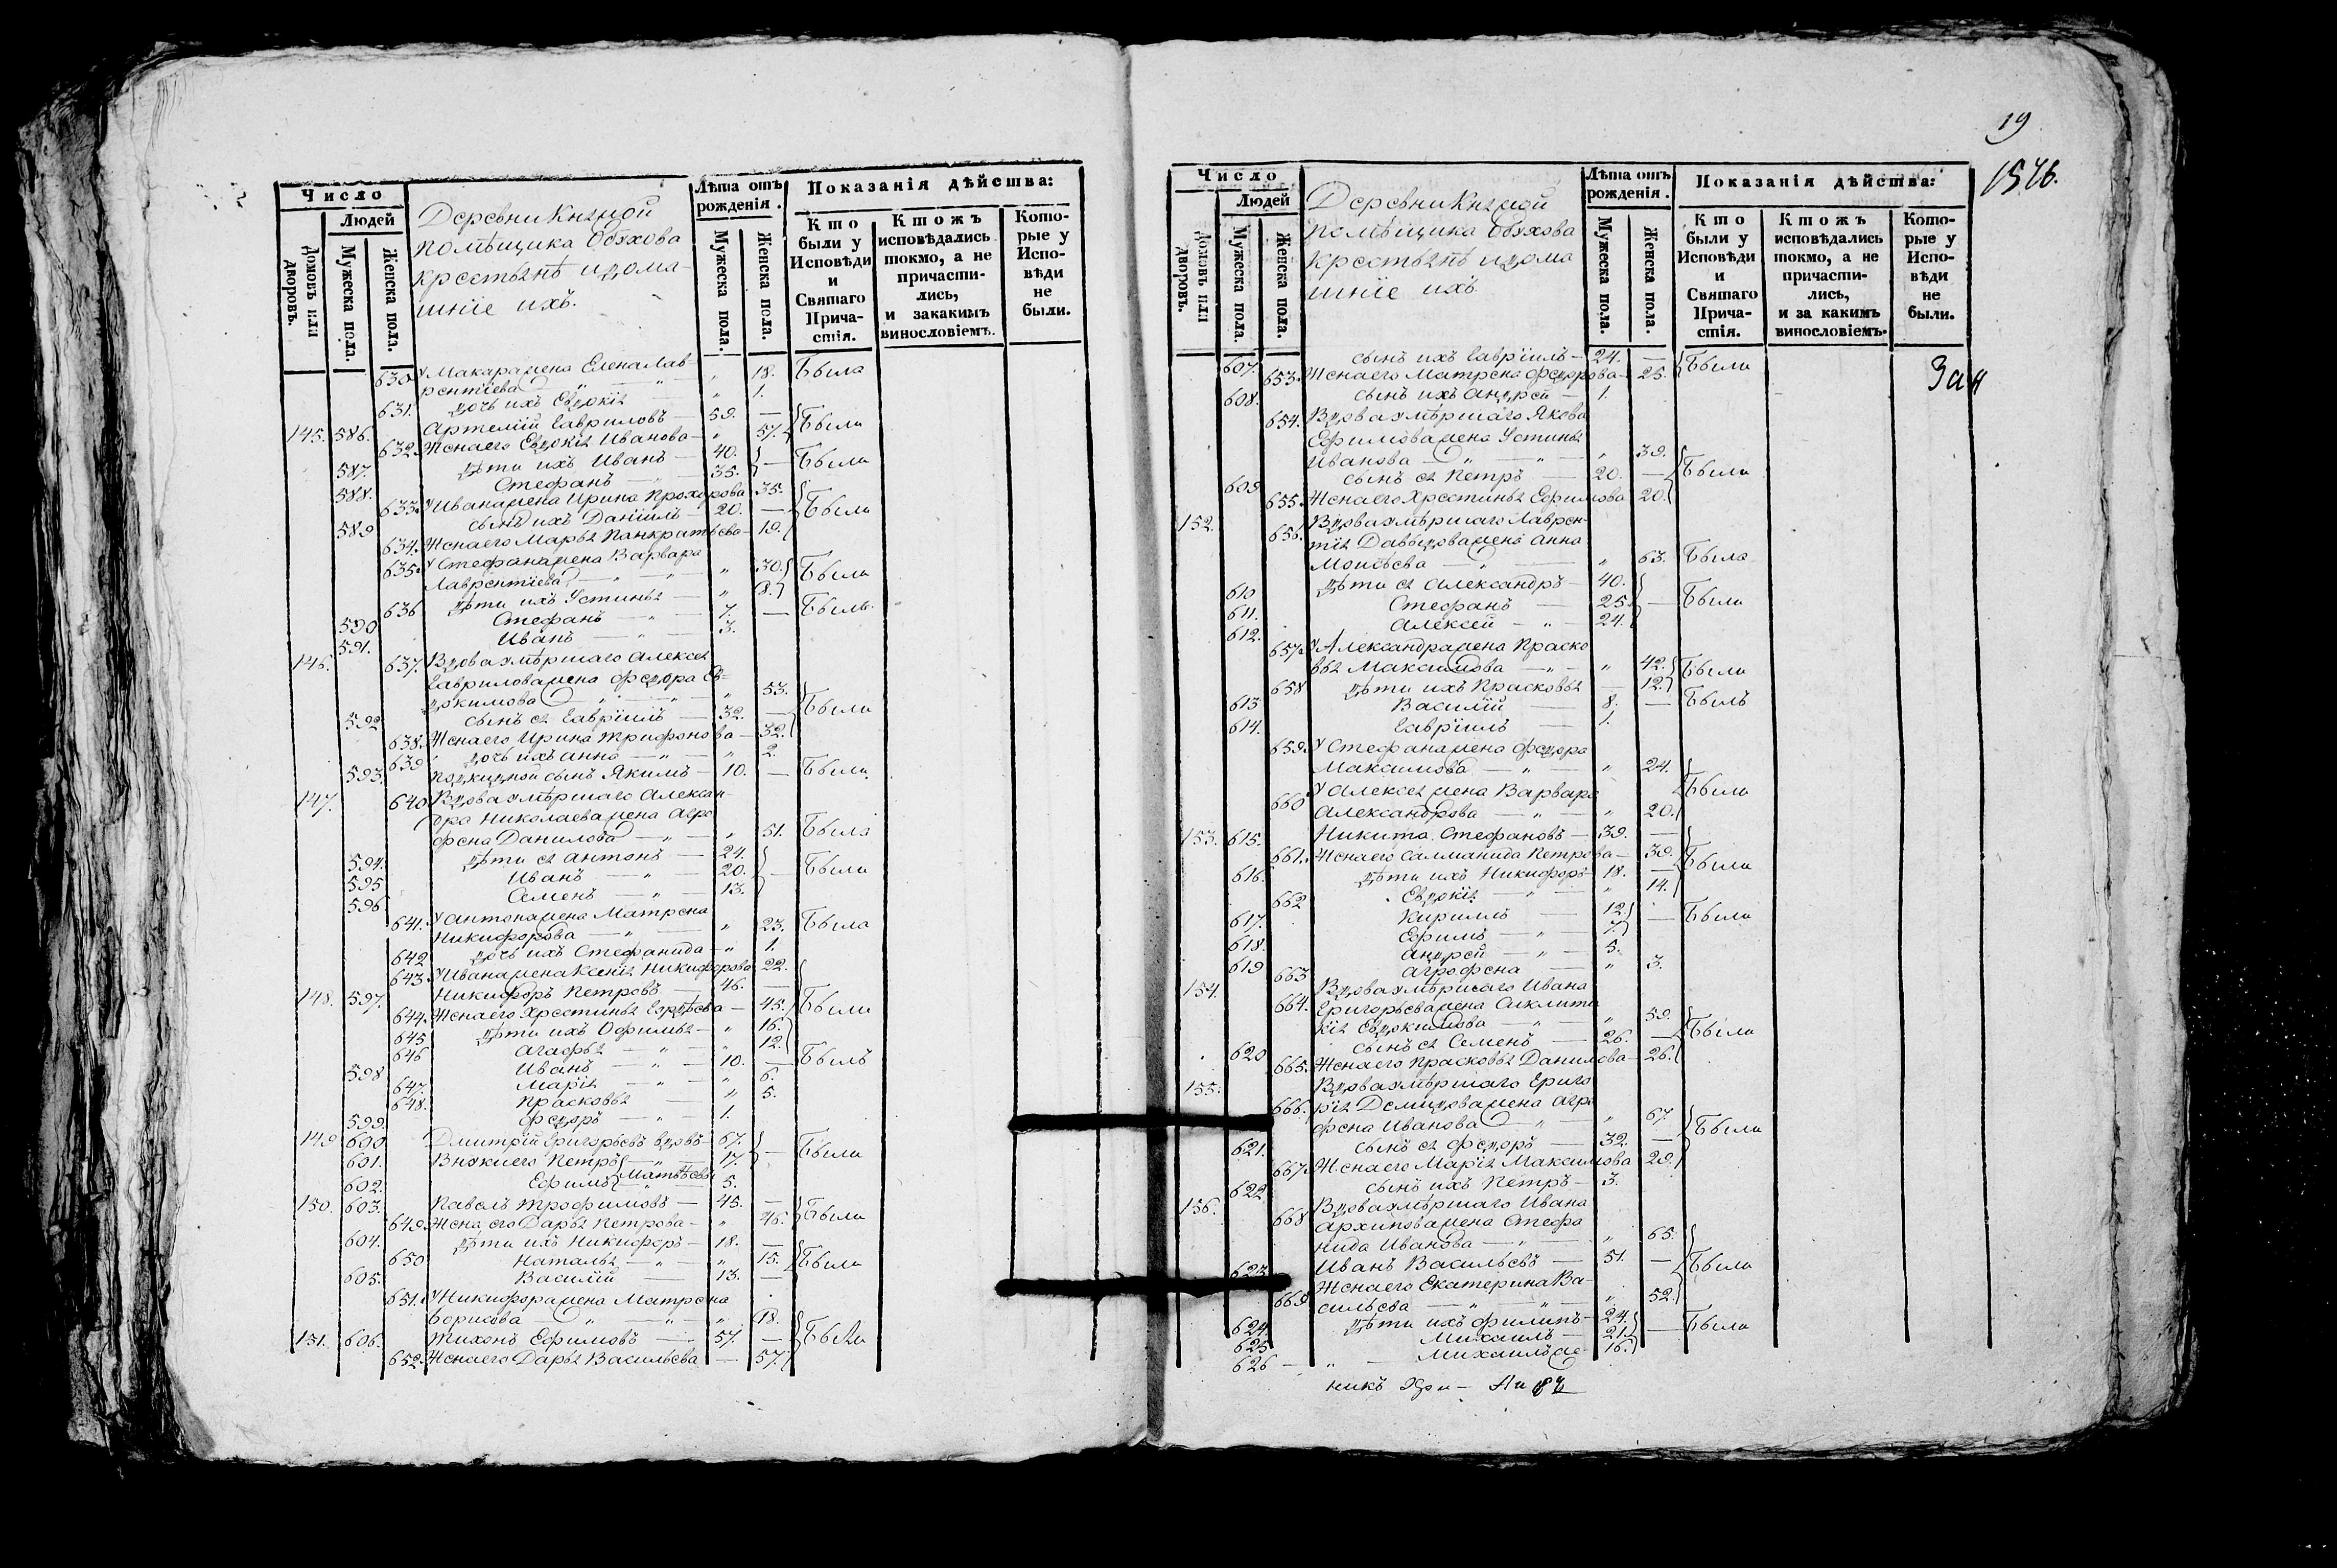 Число
Людей
Домовъ или дворовъ.
Мужеска пола.
Женска пола.
Деревни Княжой
помѣщика Обухова
крестьянѣ и дома-
шніе ихъ.
Лѣта отъ рожденія.
Мужеска пола.
Женска пола.
Показанія дѣйства:
Кто были у Исповѣди и Святаго Причастія.
Ктожъ исповѣдались токмо, а не причастились, и закакимъ винословіемъ.
Которые у Исповѣди не были.
630 У Макара жена Елена Лав-
рентіева " 18. Была
631. дочь ихъ Евдокія " 1.
145. 586. Артемій Гавриловъ 59. —
632. Жена его Евдокія Иванова " 57. Были
587. дѣти ихъ Иванъ 40.
588. Стефанъ 35. — Были
633. У Ивана жена Ирина Прохорова 35.
589 сынъ ихъ Даніилъ 20. — Были
634. Жена его Марья Панкратьева 19.
635. У Стефана жена Варвара
Лаврентіева " 30. Были
636 дѣти ихъ Устинья " 8.
590 Стефанъ 7. — Былъ
591. Иванъ 3.
146. 637. Вдова умѣршаго Алексея
Гаврилова жена Федора Ев-
докимова " 53.
592 сынъ ея Гавріилъ 32. — Были
638. Жена его Ирина Трифонова 32.
639 дочь ихъ Анна " 2
593. Подкидной сынъ Якимъ 10. — Былъ
147. 640 Вдова умѣршаго Алексан-
дра Николаева жена Агро
фена Данилова " 51. Была
594. дѣти ея Антонъ 24.
595 Иванъ 20. — Были
596 Семенъ 13.
641. У Антона жена Матрена
Никифорова " 23. Была
642 дочь ихъ Стефанида " 1.
643. У Ивана жена Ксенія Никифорова 22.
148. 597. Никифоръ Петровъ 46. —
644. Жена его Хрестинья Гордѣева 45. Были
645 дѣти ихъ Офимья " 16.
646 Агафья " 12.
598 Иванъ 10. — Былъ
647. Марія " 6.
648. Прасковья " 5.
599. Федоръ 1.
149 600 Дмитрій Григорьевъ вдовъ 67.
601. Внуки его Петръ 17. — Были
602. Ефимъ Матвѣевы 5.
150. 603. Павелъ Трофимовъ 45. —
649. Жена его Дарья Петрова " 46. Были
604. дѣти ихъ Никифоръ 18. —
650 Наталья " 15. Были
605. Василій 13. —
651. У Никифора жена Матрена
Борисова " 18.
151. 606. Тихонъ Ефимовъ 57. — Были
652. Жена его Дарья Васильева — 57.
19
1516.
Число
Людей
Домовъ или дворовъ.
Мужеска пола
Женска пола.
Деревни Княжой
помѣщика Обухова
крестьянѣ и дома
шніе ихъ
Лѣта отъ рожденія.
Мужеска пола.
Женска пола.
Показанія дѣйства:
Кто были у Исповѣди и Святаго Причастія.
Ктожъ исповѣдались токмо, а не причастились, и за какимъ винословіемъ.
Которые у Исповѣди не были.
607. сынъ ихъ Гавріилъ 24. — Были
653. Жена его Матрена Федорова 25.
608. сынъ ихъ Андрей 1.
654. Вдова умѣршаго Якова
Ефимова жена Устинья
Иванова " 39.
609 сынъ ея Петръ 20. — Были
655. Жена его Хрестинья Ефимова 20.
152. 656. Вдова умѣршаго Лаврен-
тія Давыдова жена Анна
Моисѣева " 63. Была
610 дѣти ея Александръ 40.
611. Стефанъ 25. — Были
612. Алексей 24.
657. У Александра жена Праско
вья Максимова " 42. Были
658 дѣти ихъ Прасковья — 12.
613 Василій 8. — Былъ
614. Гавріилъ 1.
659. У Стефана жена Федора
Максимова " 24.
660 У Алексея жена Варвара Были
Александрова " 20.
153. 615. Никита Стефановъ 39. —
661. Жена его Саламанида Петрова 39. Были
616. дѣти ихъ Никифоръ 18. —
662 Евдокія " 14.
617. Кирилъ 12. — Были
618. Ефимъ 7.
619 Андрей 5.
663 Агрофена " 3.
154. 664. Вдова умѣршаго Ивана
Григорьева жена Сиклити
кія Евдокимова " 59.
620 сынъ ея Семенъ 26. — Были
665. Жена его Прасковья Данилова 26.
155. 666. Вдова умѣршаго Григо
рія Демидова жена Агро
фена Иванова " 67.
621. сынъ ея Федоръ 32. — Были
667. Жена его Марія Максимова 29.
622 сынъ ихъ Петръ 3.
156. 668 Вдова умѣршаго Ивана
Архипова жена Стефа
нида Иванова " 65.
623 Иванъ Васильевъ 51. — Были
669 Жена его Екатерина Ва-
сильева " 52.
624. дѣти ихъ Филипъ 24.
625 Михаилъ 21. — Были
626 — " Михаилъ 16.